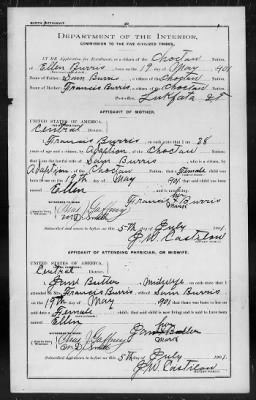 BIRTH AFFIDAVIT.
DEPARTMENT OF THE INTERIOR,
COMMISSION TO THE FIVE CIVILIZED TRIBES.
IN RE Application for Enrollment, as a citizen of the Choctaw Nation,
of Ellen Burris, born on the 19 day of May, 1901
Name of Father: Sam Burris, a citizen of the Choctaw Nation.
Name of Mother: Francis Burris, a citizen of the Choctaw Nation.
Lukfata I.T.
AFFIDAVIT OF MOTHER.
UNITED STATES OF AMERICA,
Central District.
I, Francis Burris, on oath state that I am 28
years of age and a citizen, by Adoption, of the Choctaw Nation,
that I am the lawful wife of Sam Burris, who is a citizen, by
Adoption, of the Choctaw Nation, that a Female child was
born to me on 19th day of May, 1901, that said child has been named
Ellen, and is now living.
Francis Burris
her
mark
W. D. Smith
Subscribed and sworn to before me this 5th day of July, 1901.
J.W. Castilow
AFFIDAVIT OF ATTENDING PHYSICIAN, OR MIDWIFE.
UNITED STATES OF AMERICA,
Central District.
I, Butler, a Midwife, on oath state that I
attended on Mrs. Francis Burris, wife of Sam Burris
on the 19th day of May, 1901, that there was born to her on said
date a Female child; that said child is now living and is said to have been named
Ellen
her
mark
W. D. Smith
Subscribed and sworn to before me this 5th day of July, 1901.
J.W. Castilow